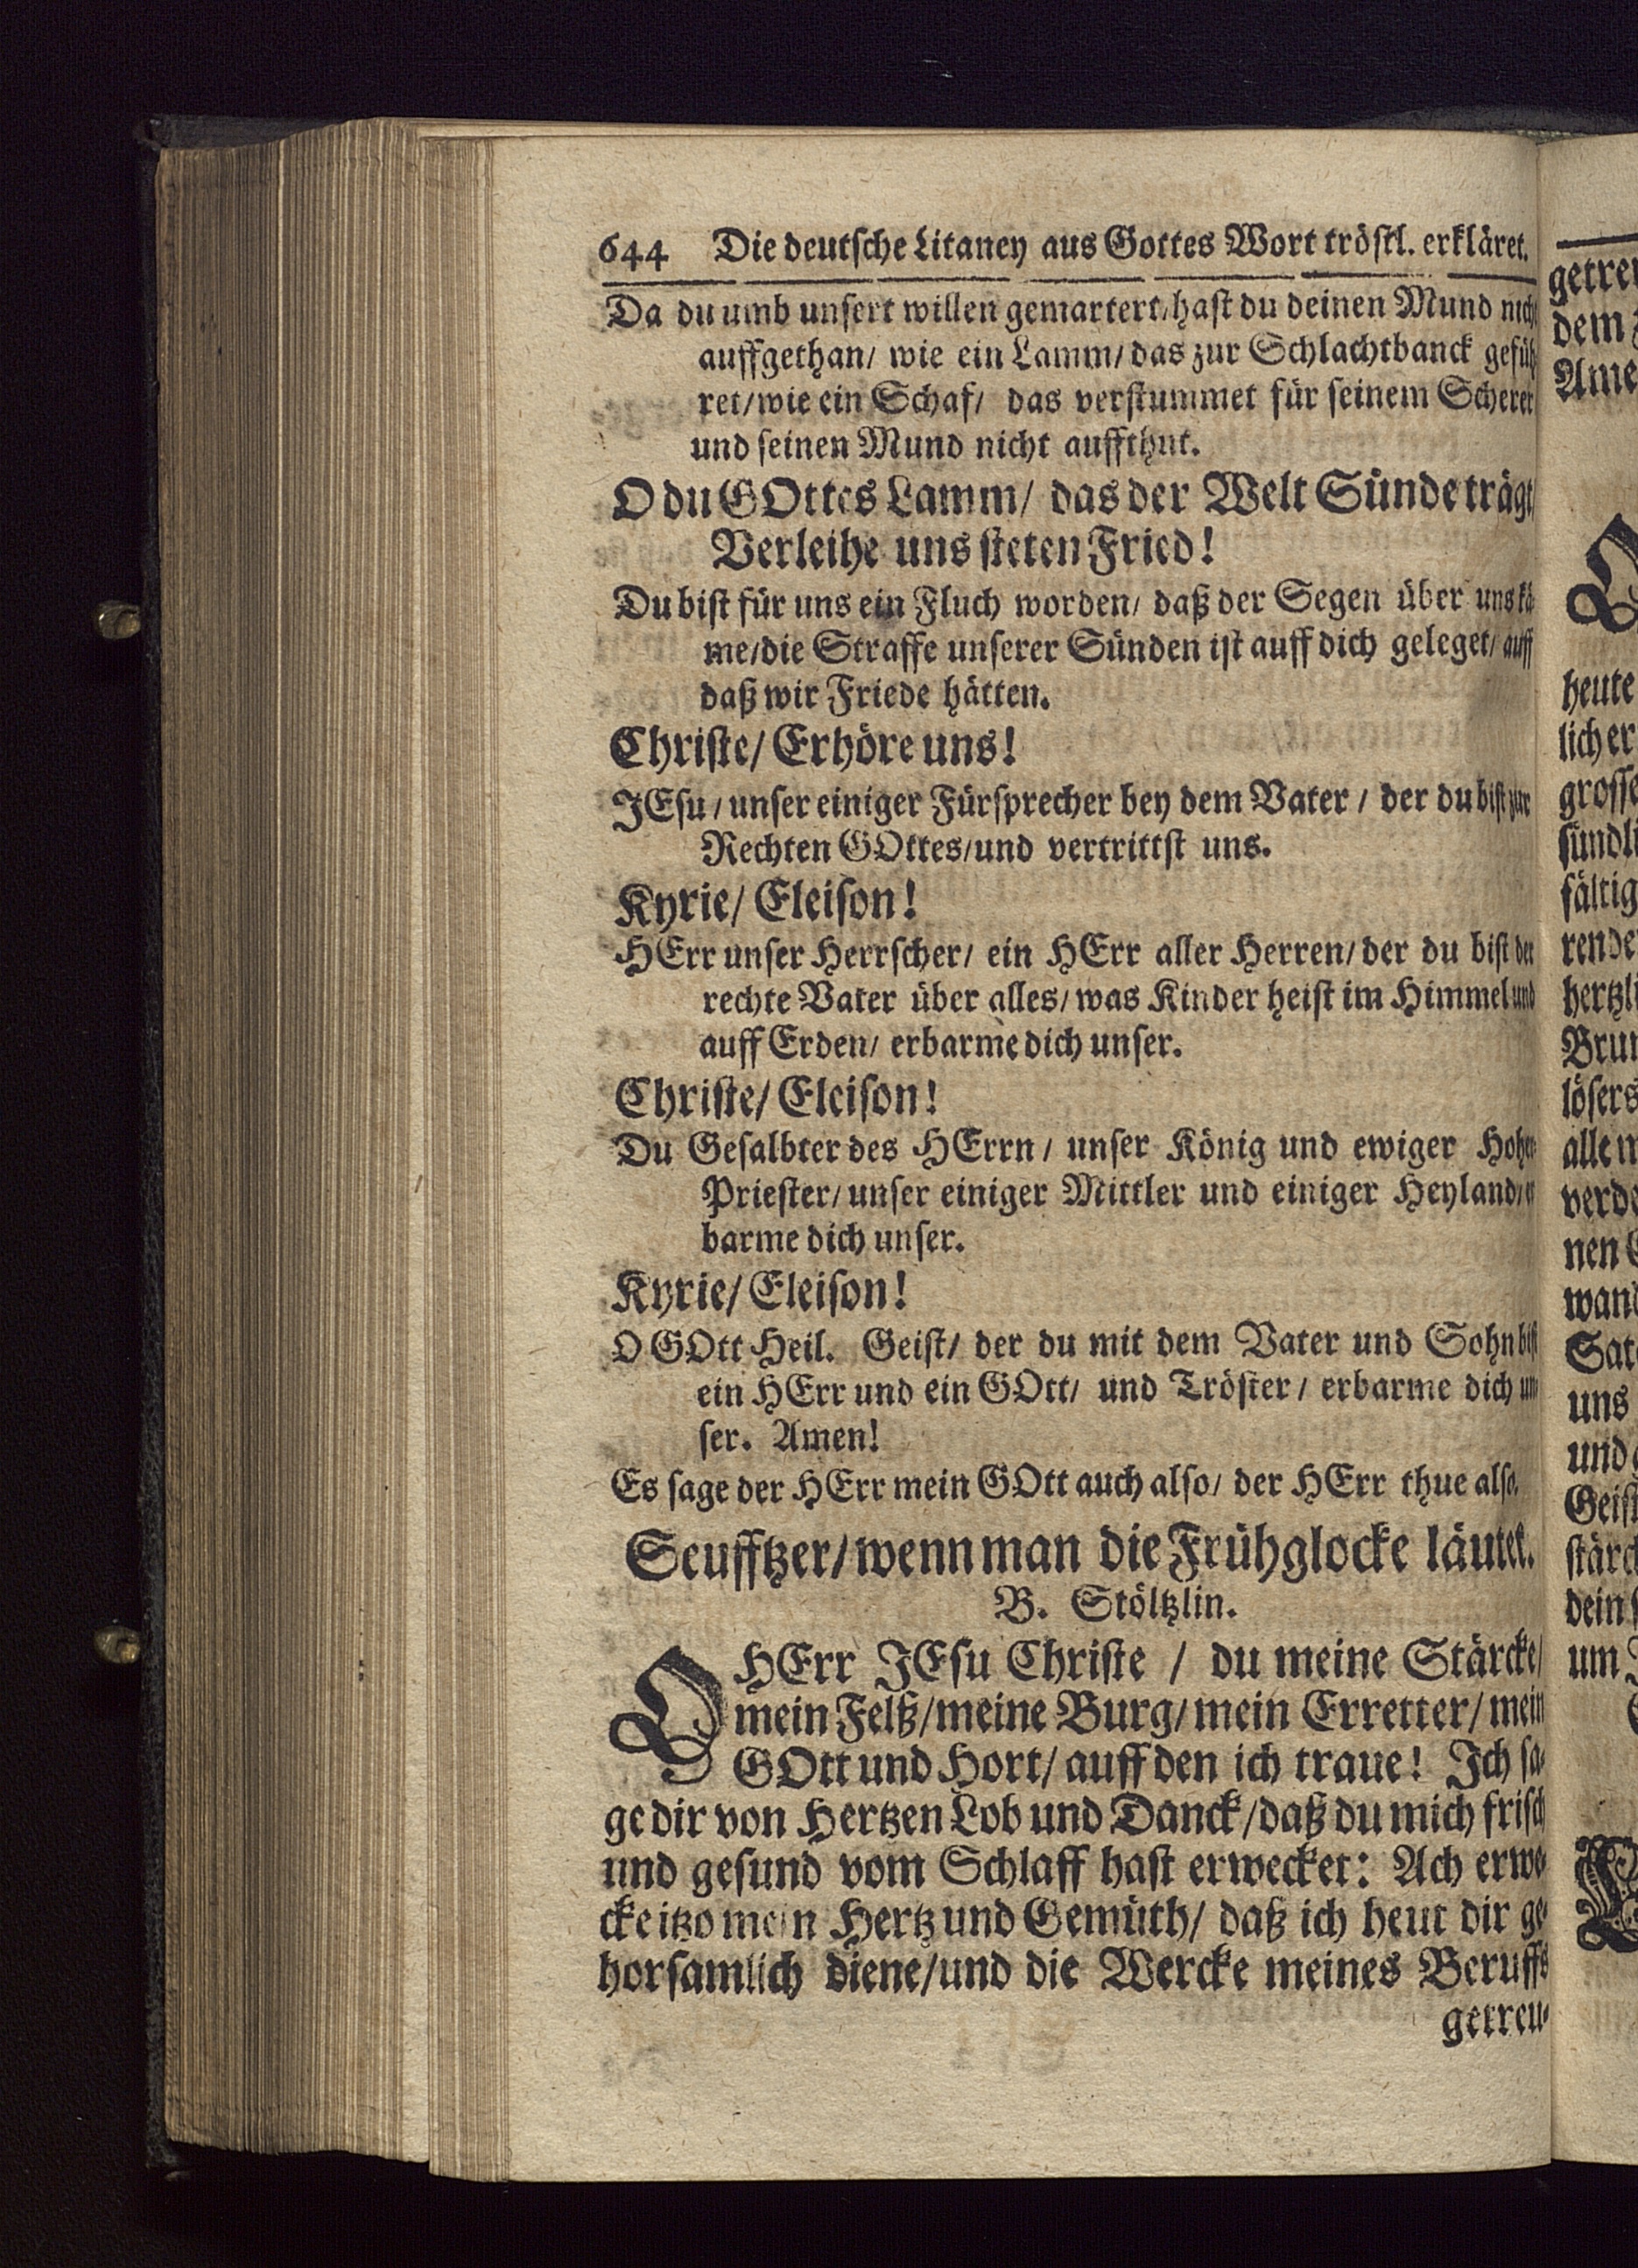 644 Die deutsche Litaney aus Gottes Wort tröstl. erkläret.
Da du umb unsert willen gemartert/hast du deinen Mund nicht
auffgethan/ wie ein Lamm/ das zur Schlachtbanck gefüh
ret/wie ein Schaf/ das verstummet für seinem Scherer
und seinen Mund nicht auffthut.
O du GOttes Lamm/ das der Welt Sünde trägt/
Verleihe uns steten Fried!
Du bist für uns ein Fluch worden/ daß der Segen über uns kä
me/die Straffe unserer Sünden ist auff dich geleget/ auff
daß wir Friede hätten.
Christe/ Erhöre uns!
JEsu/ unser einiger Fürsprecher bey dem Vater/ der du bist zur
Rechten GOttes/und vertrittst uns.
Kyrie/ Eleison!
HErr unser Herrscher/ ein HErr aller Herren/ der du bist der
rechte Vater über alles/ was Kinder heist im Himmel und
auff Erden/ erbarme dich unser.
Christe/ Eleison!
Du Gesalbter des HErrn/ unser König und ewiger Hoher
Priester/ unser einiger Mittler und einiger Heyland/ er
barme dich unser.
Kyrie/ Eleison!
O GOtt Heil. Geist/ der du mit dem Vater und Sohn bist
ein HErr und ein GOtt/ und Tröster/ erbarme dich un-
ser. Amen!
Es sage der HErr mein GOtt auch also/ der HErr thue also.
Seufftzer/wenn man die Frühglocke läutet.
B. Stöltzlin.
O HErr JEsu Christe / du meine Stärcke/
mein Felß/meine Burg/ mein Erretter/ mein
GOtt und Hort/ auff den ich traue! Ich sa-
ge dir von Hertzen Lob und Danck/daß du mich frisch
und gesund vom Schlaff hast erwecket: Ach erwe-
cke itzo mein Hertz und Gemüth/ daß ich heut dir ge-
horsamlich diene/und die Wercke meines Beruffs
getreu-
dem
Ame
heute
lich er
grosse
sündli
fältig
hertzli
Brun
lösers
alle m
verde
nen
wand
Sat
uns
und
Geist
stärck
dein
um